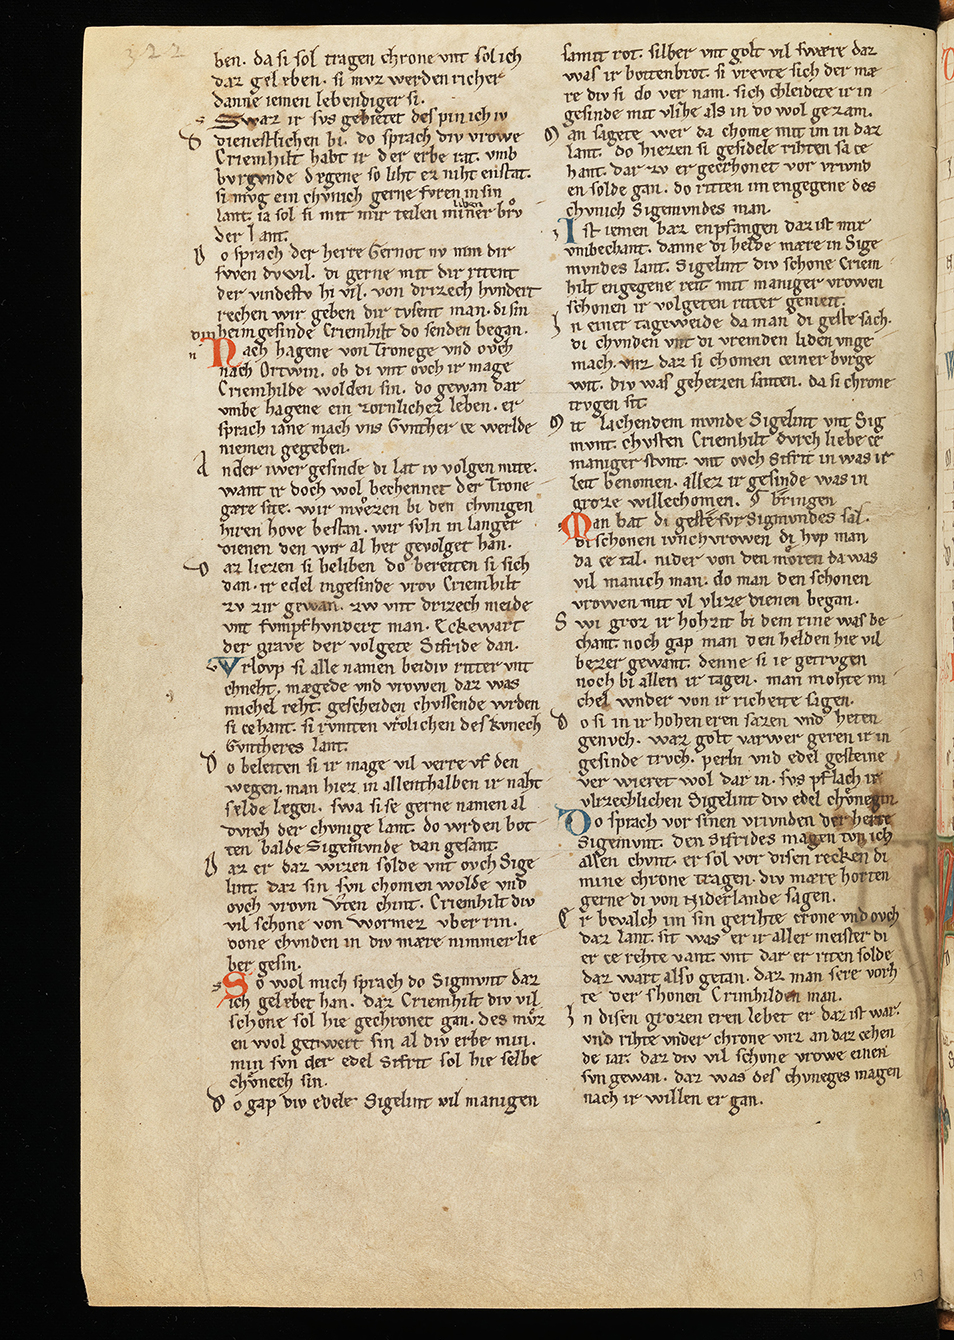 322
ben. da si sol tragen chrone vnt sol ich
daz geleben. si mvz werden richer
danne iemen lebendiger si.
Swaz ir svs gebietet des pin ich iv
dienestlichen bi. do sprach div vrowe
Criemhilt habt ir der erbe rat. vmb
bvrgonde degene so liht ez niht enstat.
si mvg ein chvnich gerne fvren in sin
lant. ia sol si mit mir teilen miner
der lant.
D o sprach der herre Gernot nv nim dir
swen dv wil. di gerne mit dir ritent
der vindestv hi vil. von drizech hvndert
rechen wir geben dir tvsent man. di sin
din heimgesinde Criemhilt do senden began.
Nach hagene von Tronege vnd ovch
nach Ortwin. ob di vnt ovch ir mage
Criemhilde wolden sin. do gewan dar
vmbe hagene ein zornlichez leben. er
sprach iane mach vns Gvnther ce werlde
niemen gegeben.
A nder iwer gesinde di lat iv volgen mite.
want ir doch wol bechennet der Trone
gære site. wir mvezen bi den chvnigen
hiren hove bestan. wir svln in langer
dienen den wir al her gevolget han.
D az liezen si beliben do bereiten si sich
dan. ir edel ingesinde vrov Criemhilt
zv zir gewan. zw vnt drizech meide
vnt fvmpfhvndert man. Eckewart
der grave der volgete Sifride dan.
Vrlovp si alle namen beidiv ritter vnt
chneht. mægede vnd vrowen daz was
michel reht. gescheiden chvssende wrden
si ce hant. si rvmten vrolichen des kvnech
Gvntheres lant.
D o beleiten si ir mage vil verre vf den
wegen. man hiez in allenthalben ir naht
selde legen. swa si se gerne namen al
dvrch der chvnige lant. do wrden bot
ten balde Sigemvnde dan gesant.
D az er daz wizen solde vnt ovch Sige
lint. daz sin svn chomen wolde vnd
ovch vrovn Vten chint. Criemhilt div
vil schone von wormez vber rin.
done chvnden in div mære nimmer lie
ber gesin.
So wol mich sprach do Sigmvnt daz
ich gelebet han. daz Criemhilt div vil
schone sol hie gechronet gan. des mvz
en wol getiwert sin al div erbe min.
min svn der edel Sifrit sol hie selbe
chvnech sin.
D o gap div edele Sigelint vil manigen
samit rot. silber vnt golt vil swære daz
was ir bottenbrot. si vrevte sich der mæ
re div si do ver nam. sich chleidete ir in
gesinde mit vlihe als in do wol gezam.
M an sagete wer da chome mit im in daz
lant. do hiezen si gesidele rihten sa ce
hant. dar zv er gechronet vor vrivnd
en solde gan. do ritten im engegene des
chvnich Sigemvndes man.
Ist iemen baz enpfangen daz ist mir
vmbechant. danne di helde mære in Sige
mvndes lant. Sigelint div schone Criem
hilt engegene reit mit maniger vrowen
schonen ir volgeten ritter gemeit.
I n einer tageweide da man di geste sach.
di chvnden vnt di vremden liden vnge
mach. vnz daz si chomen ceiner bvrge
wit. div was geheizen santen. da si chrone
trvgen sit.
M it lachendem mvnde Sigelint vnt Sig
mvnt. chvsten Criemhilt dvrch liebe ce
maniger stvnt. vnt ovch Sifrit in was ir
leit benomen. allez ir gesinde was in
groze willechomen. bringen
Man bat di geste for Sigmvndes sal.
di schonen ivnchvrowen di hvp man
da ce tal. nider von den moren da was
vil manich man. do man den schonen
vrowen mit vl vlize dienen began.
S wi groz ir hohzit bi dem rine was be
chant. noch gap man den helden hie vil
bezer gewant. denne si ie getrvgen
noch bi allen ir tagen. man mohte mi
chel wnder von ir richeite sagen.
D o si in ir hohen eren sazen vnd heten
genvch. waz golt varwer geren ir in
gesinde trvch. perln vnd edel gesteine
ver wieret wol dar in. svs pflach ir
vlizechlichen Sigelint div edel chvnegin
Do sprach vor sinen vrivnden der herre
Sigemvnt. den Sifrides magen tvn ich
allen chvnt. er sol vor disen recken di
mine chrone tragen. div mære horten
gerne di von Niderlande sagen.
E r bevalch im sin gerihte crone vnd ovch
daz lant. sit was er ir aller meister di
er ce rehte vant vnt dar er riten solde
daz wart also getan. daz man sere vorh
te der shonen Crimhilden man.
I n disen grozen eren lebet er daz ist war.
vnd rihte vnder chrone vnz an daz cehen
de iar. daz div vil schone vrowe einen
svn gewan. daz was des chvneges magen
nach ir willen er gan.